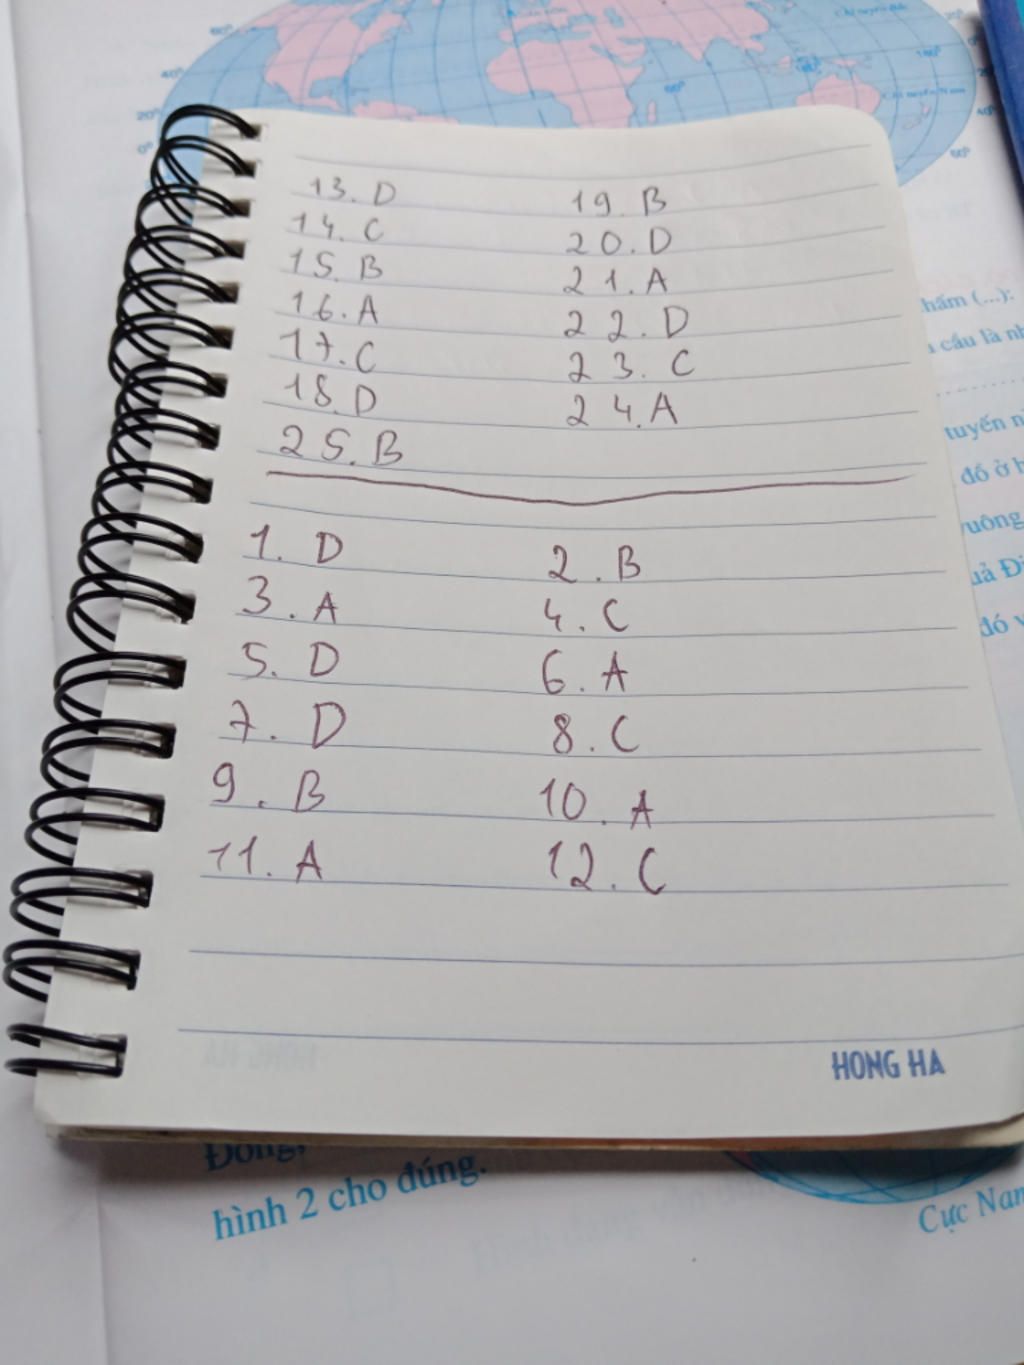 60⁰
40⁰
20⁰
0⁰
13. D
19. B
14. C
20. D
15. B
21. A
16. A
22. D
17. C
23. C
18. D
24. A
25. B
1. D
2. B
3. A
4. C
5. D
6. A
7. D
8. C
9. B
10. A
11. A
12. C
HONG HA
(...):
cầu là
tuyến
đồ ở
vuông
đó
Đông,
hình 2 cho đúng.
Cực Nam